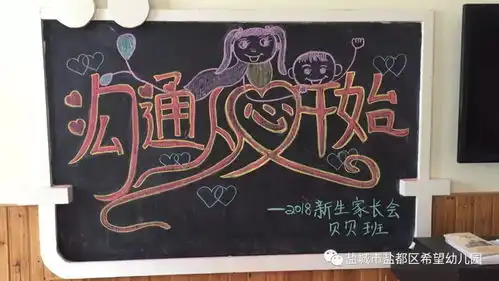 沟通从心开始
—2018新生家长会
贝贝班
盐城市盐都区希望幼儿园